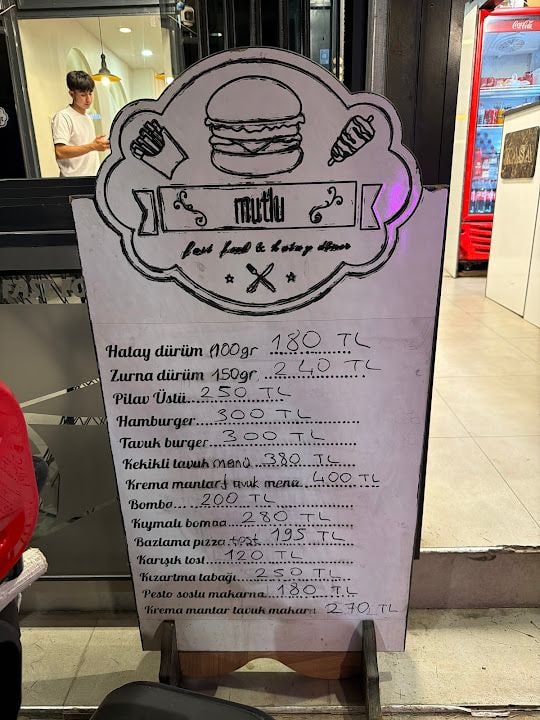 Coca-Cola
KASA
mutlu
fast food & hatay döner
Hatay dürüm 100gr 180 TL
Zurna dürüm 150gr 240 TL
Pilav Üstü 250 TL
Hamburger 300 TL
Tavuk burger 300 TL
Kekikli tavuk menü 380 TL
Krema mantarlı tavuk menü 400 TL
Bombo 200 TL
Kıymalı bomba 280 TL
Bazlama pızza tost 195 TL
Karışık tost 120 TL
Kızartma tabağı 250 TL
Pesto soslu makarna 180 TL
Krema mantar tavuk makarn 270 TL